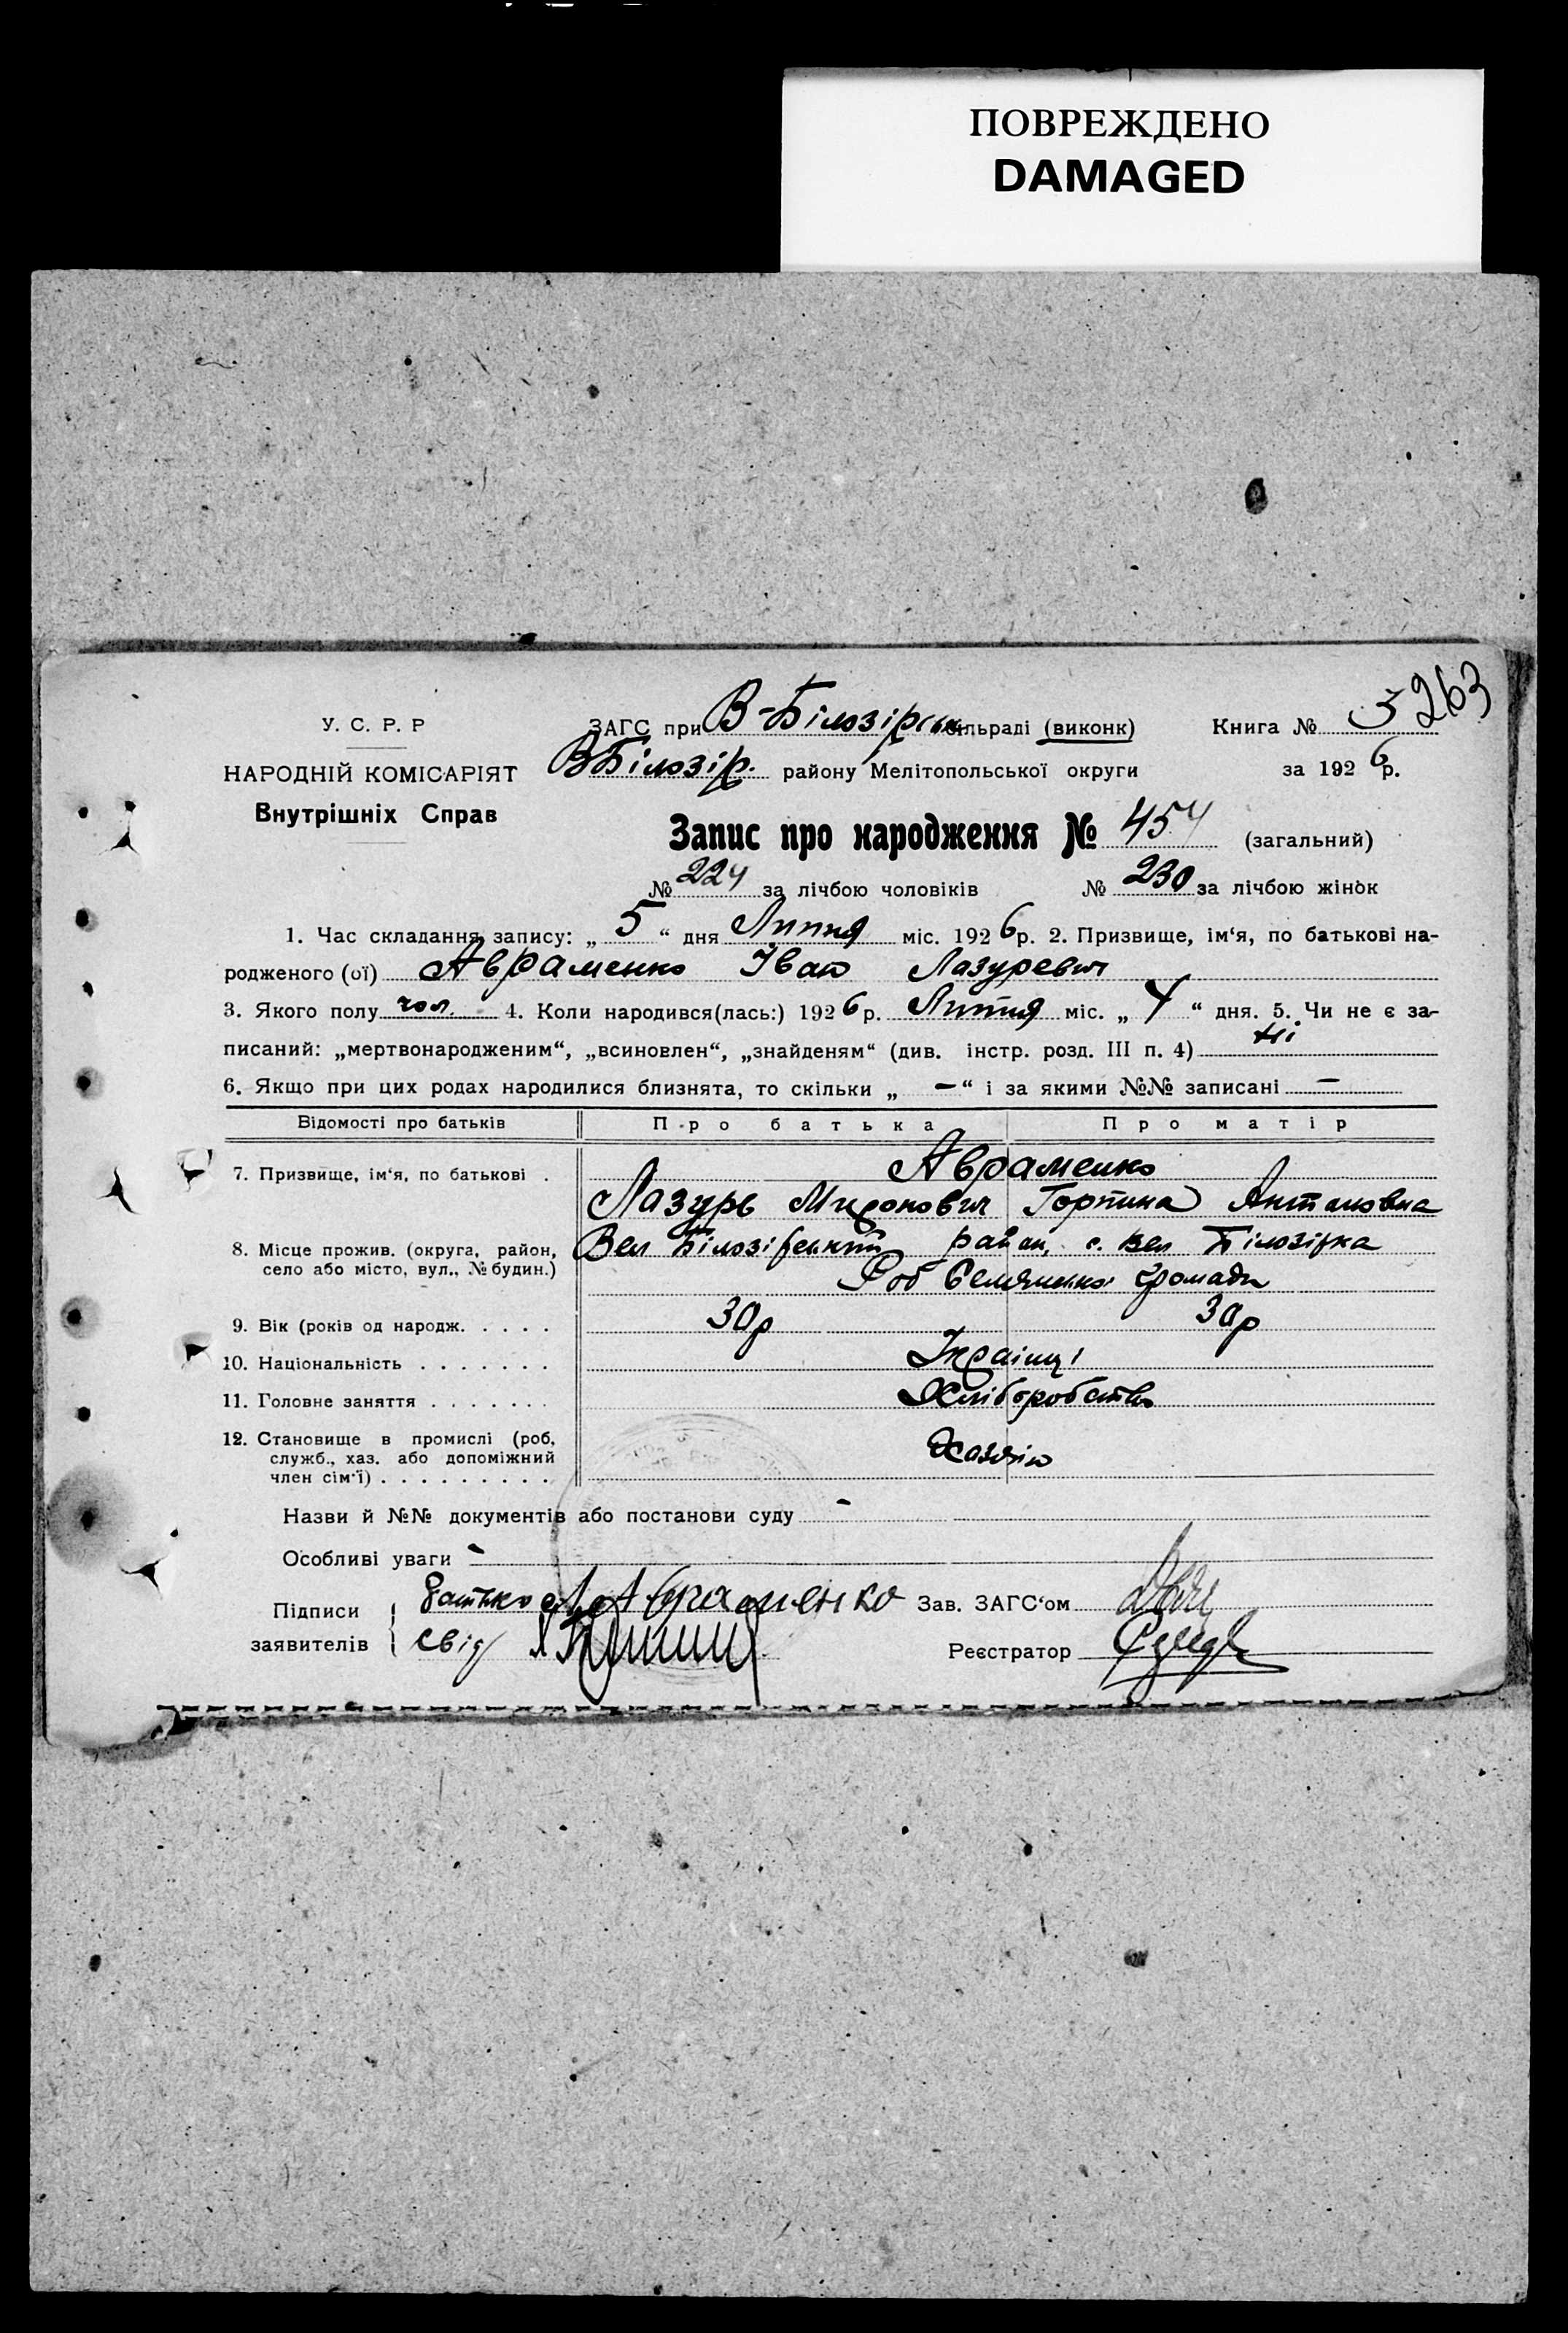 ПОВРЕЖДЕНО
DAMAGED
263
У. С. Р. Р
ЗАГС при В-Білозірськ сільраді (виконк) Книга № 5
НАРОДНІЙ КОМІСАРІЯТ
ВБілозір. району Мелітопольської округи за 1926 р.
Внутрішніх Справ
Запис про народження № 454 (загальний)
№ 224 за лічбою чоловіків № 230 за лічбою жінок
1. Час складання запису: „ 5 “ дня Липня міс. 1926 р. 2. Призвище, ім‘я, по батькові на-
родженого (ої) Авраменко Іван Лазуревич
3. Якого полу чол. 4. Коли народився(лась:) 1926 р. Липня міс. „ 4 “ дня. 5. Чи не є за-
писаний: „мертвонародженим“, „всиновлен“, „знайденям“ (див. інстр. розд. III п. 4) Ні
6. Якщо при цих родах народилися близнята, то скільки „ — “ і за якими №№ записані —
Відомості про батьків Про батька Про матір
7. Призвище, ім‘я, по батькові . Авраменко
Лазурь Миронович Горпина Антоновна
8. Місце прожив. (округа, район, село або місто, вул., № будин.) Вел Білозірський район, с. Вел Білозірка
громади
9. Вік (років од народж. . . . . 30р 30р
10. Національність . . . . . . . Українці
11. Головне заняття . . . . . . . Хліборобство
12. Становище в промислі (роб, служб., хаз. або допоміжний член сім‘ї) . . . . . . . . . Хазяїн
Назви й №№ документів або постанови суду -
Особливі уваги -
Підписи заявителів { батько Л Авраменко Зав. ЗАГС‘ом
свід Реєстратор